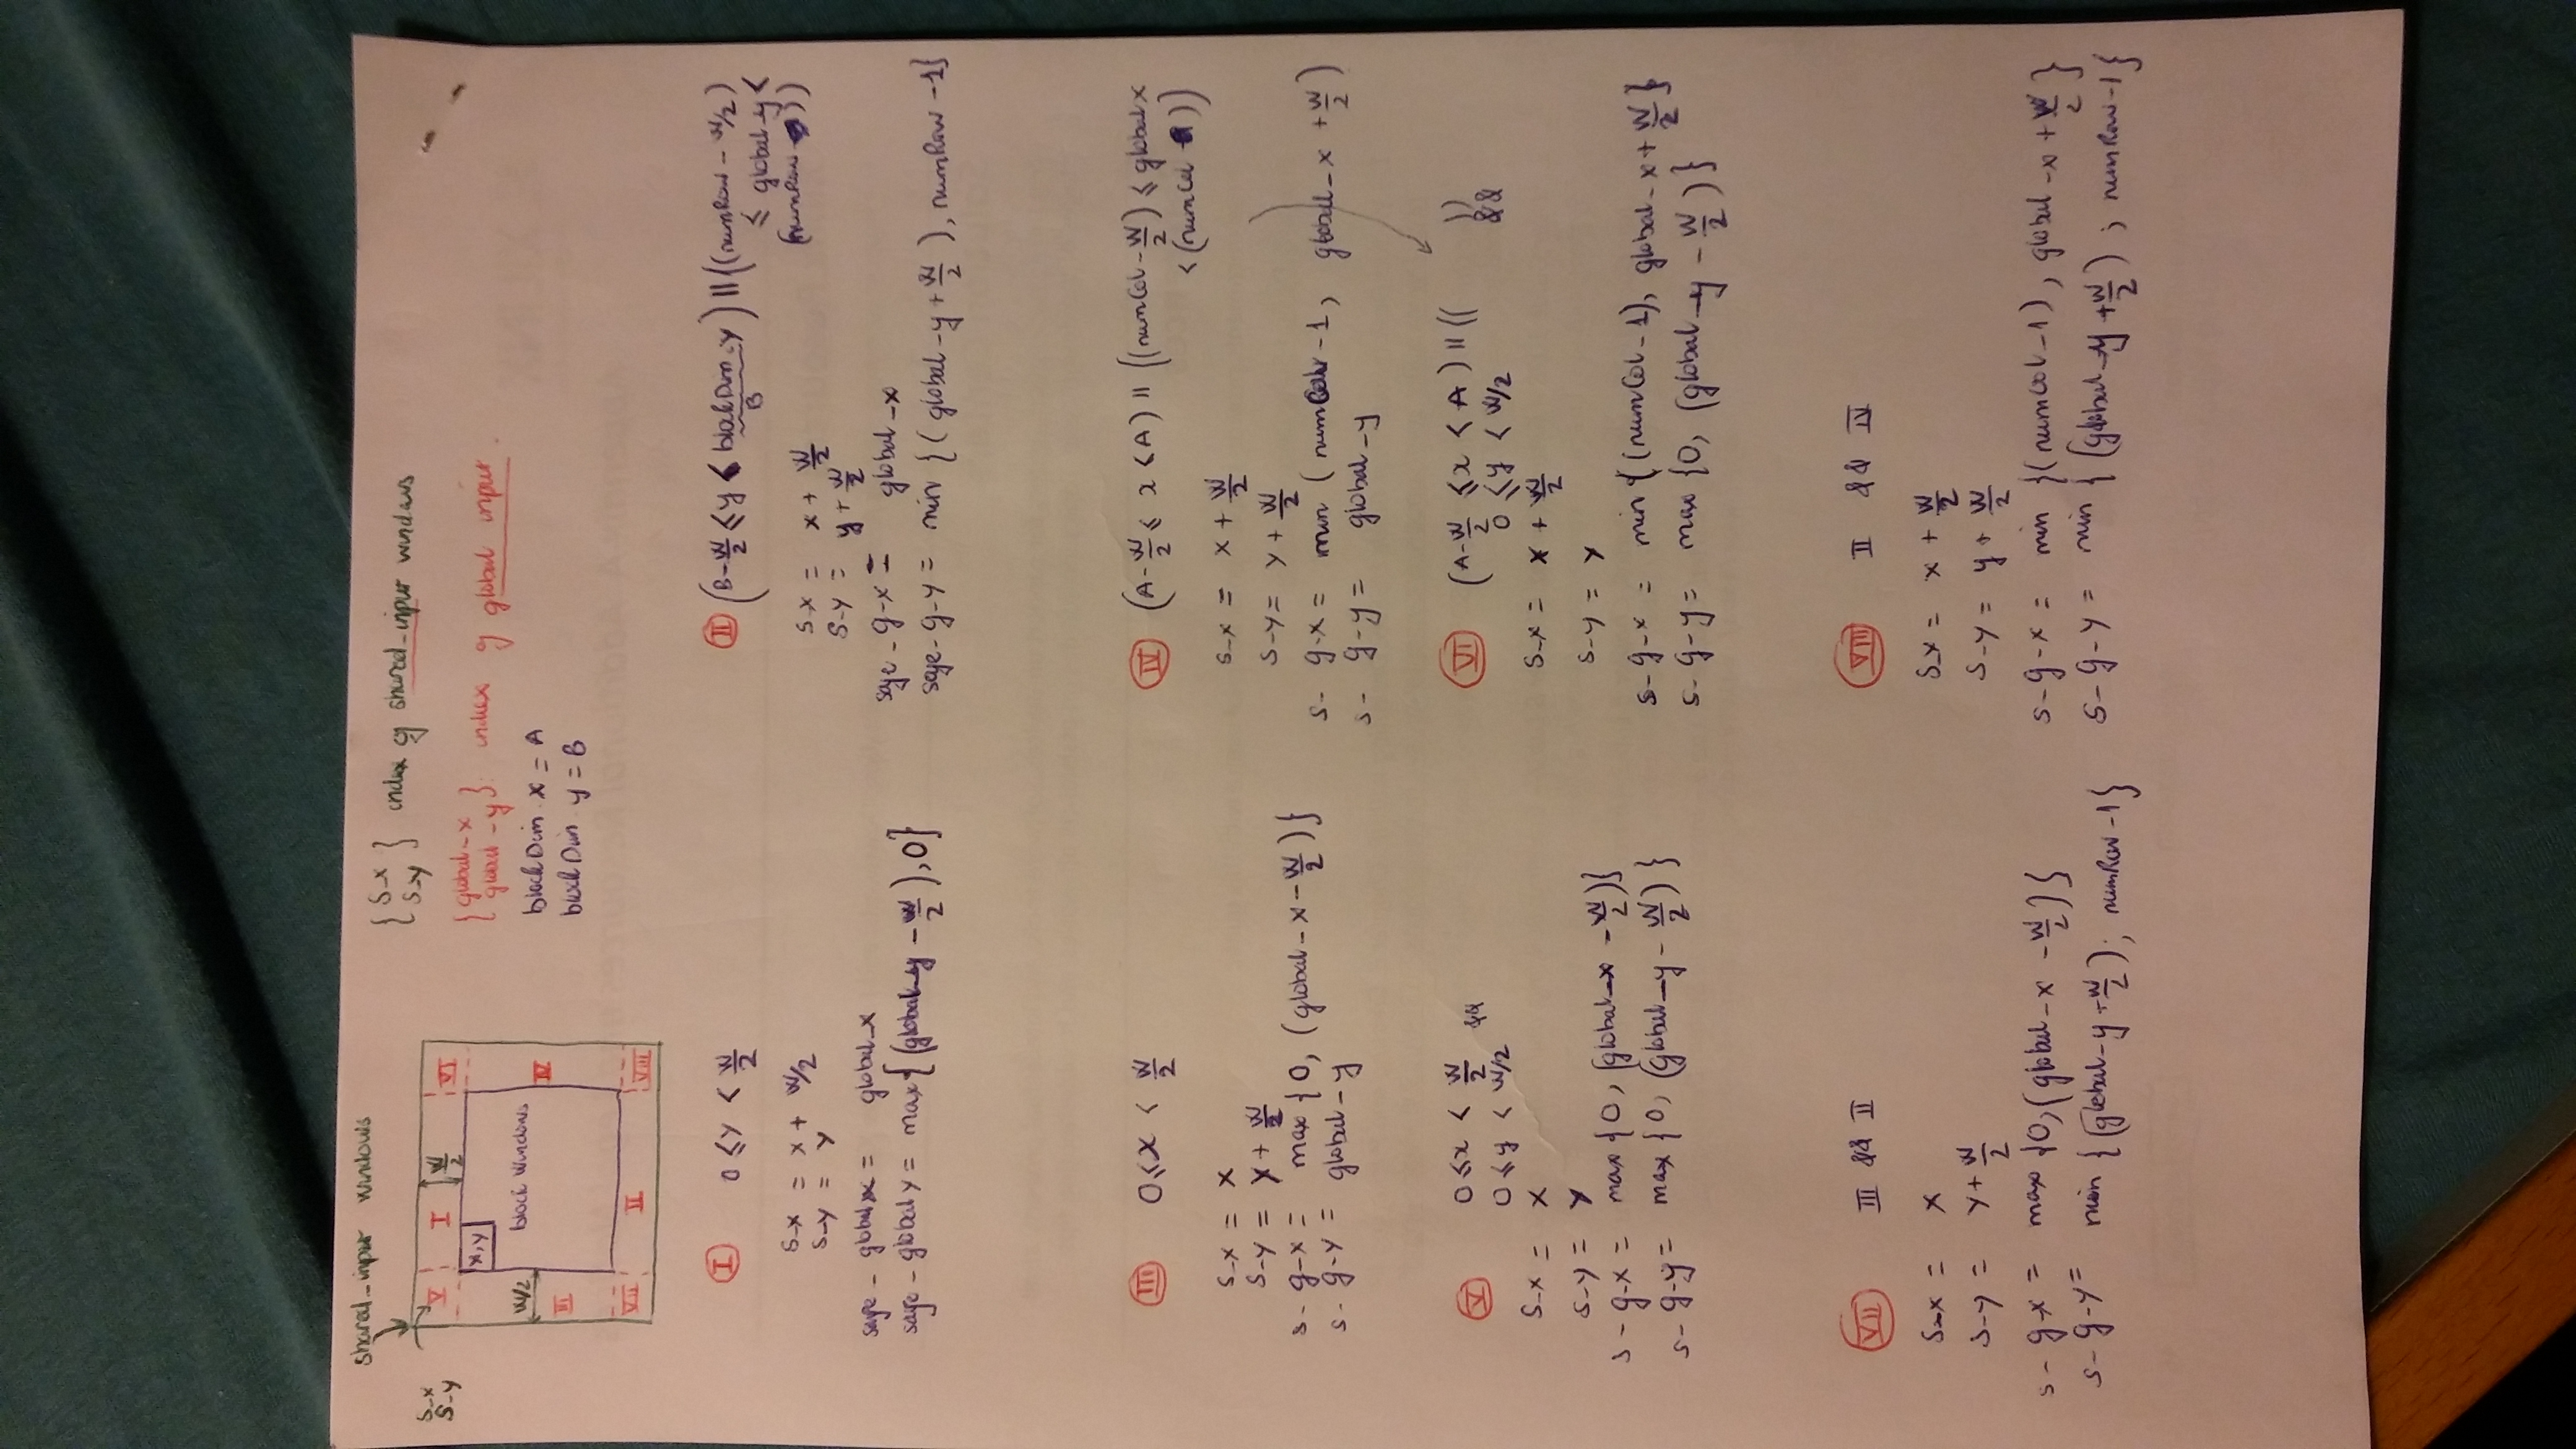 shared_input windows
S_x
S_y
V I W/2 VI
x,y
W/2 block windows IV
III
VII II VIII
{ S_x
S_y } index of shared_input windows
{ global_x
global_y }: index of global input.
blockDim.x = A
blockDim.y = B
I 0 ≤ y < W/2
S_x = x + W/2
S_y = y
safe_globalx = global_x
safe_globaly = max{(global_y - W/2), 0}
II (B - W/2 ≤ y < blockDim.y) || ((numRow - W/2)
B ≤ global_y <
(numRow ))
S_x = x + W/2
S_y = y + W/2
safe_g_x = global_x
safe_g_y = min {( global_y + W/2 ), numRow - 1}
III 0 ≤ x < W/2
S_x = x
S_y = y + W/2
s_g_x = max {0, (global_x - W/2)}
s_g_y = global_y
IV (A - W/2 ≤ x < A) || ((numCol - W/2) ≤ globalx
< (numCol ))
S_x = x + W/2
S_y = y + W/2
s_g_x = min (numCol - 1, global_x + W/2)
s_g_y = global_y
V 0 ≤ x < W/2 &&
0 ≤ y < W/2
S_x = x
S_y = y
s_g_x = max {0, (global_x - W/2)}
s_g_y = max {0, (global_y - W/2)}
VI (A - W/2 ≤ x < A) || (( ))
0 ≤ y < W/2 &&
S_x = x + W/2
S_y = y
s_g_x = min {(numCol - 1), global_x + W/2}
s_g_y = max {0, (global_y - W/2)}
VII III && II
S_x = x
S_y = y + W/2
s_g_x = max {0, (global_x - W/2)}
s_g_y = min {(global_y + W/2); numRow - 1}
VIII II && IV
S_x = x + W/2
S_y = y + W/2
s_g_x = min {(numCol - 1), global_x + W/2}
s_g_y = min {(global_y + W/2) ; numRow - 1}